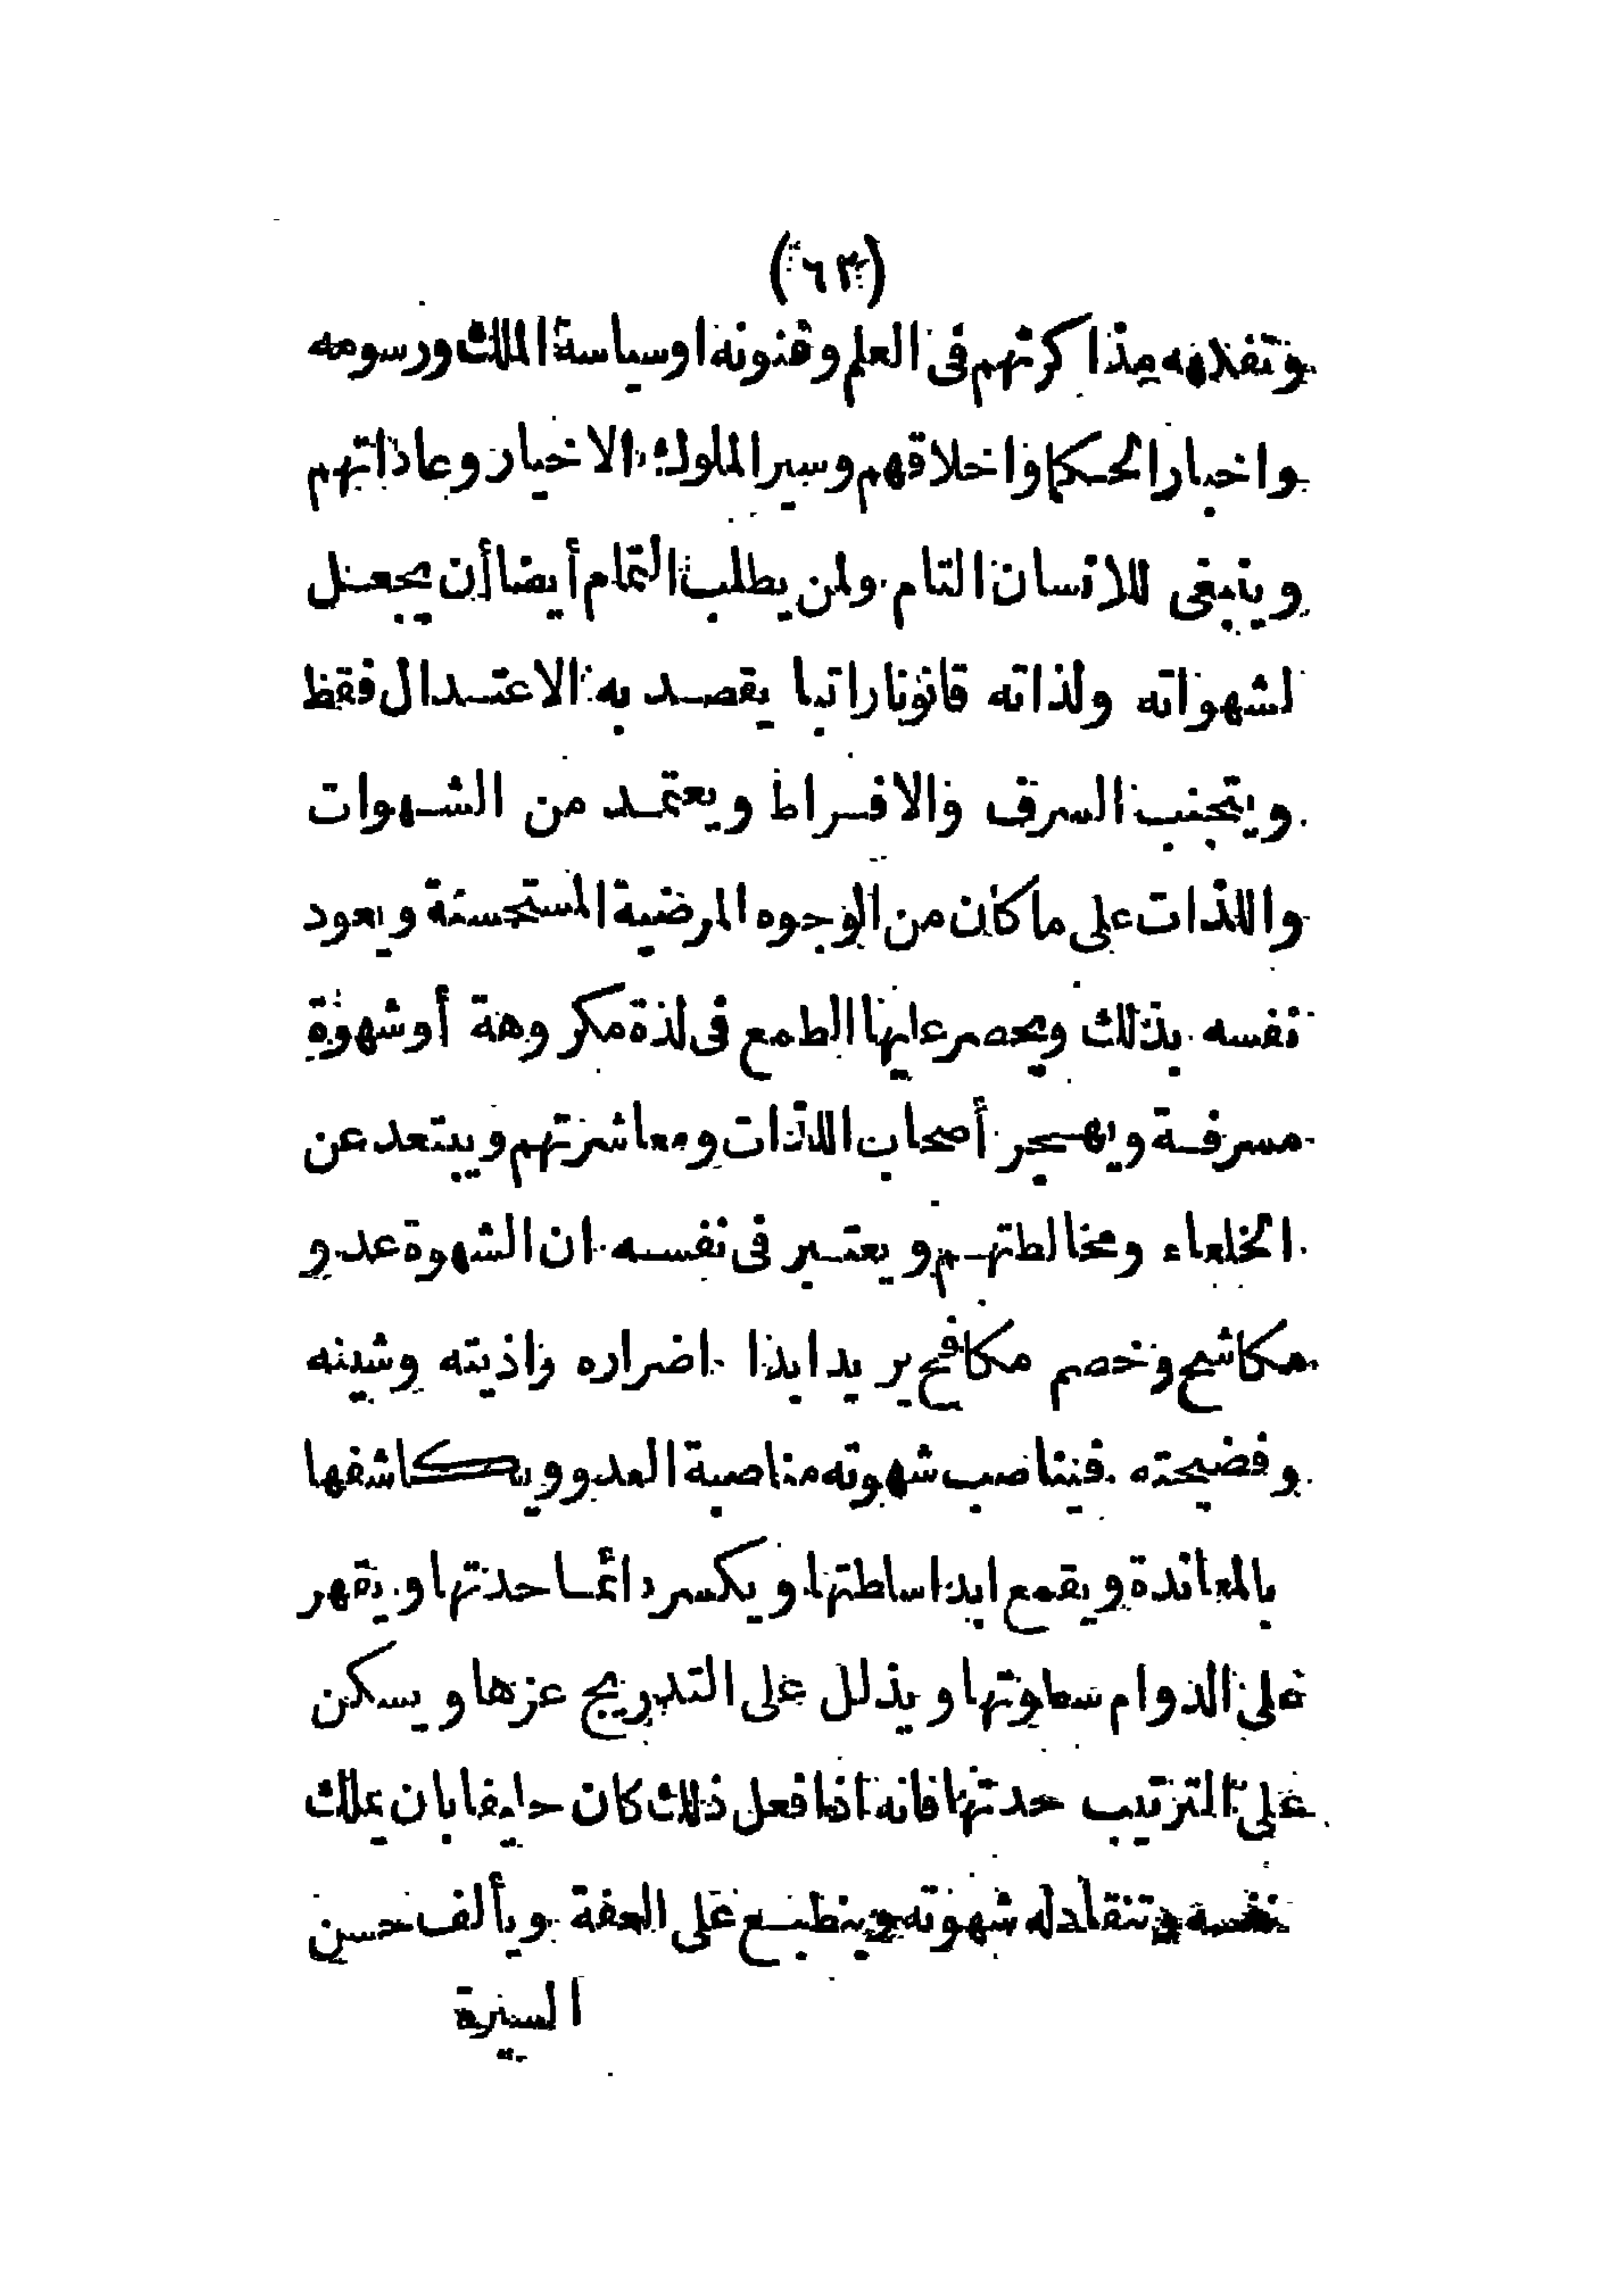 (٦٣)
مذاكرتهم فى العلم وفنونه او سياسة الملك ورسومه
واخبار الحكما واخلاقهم وسير الملوك الاخيار وعاداتهم
وينبغى للانسان التام ولمن يطلب التمام أيضا أن يجعل
لشهواته ولذاته قانونا راتبا يقصد به الاعتدال فقط
ويتجنب السرف والافراط ويعتمد من الشهوات
واللذات على ما كان من الوجوه المرضية المستحسنة ويعود
نفسه بذلك ويحصر عليها الطمع فى لذة مكروهة أو شهوة
مسرفة ويهجر أصحاب اللذات ومعاشرتهم ويبتعد عن
الخلعاء ومخالطتهم ويعتبر فى نفسه ان الشهوة عدو
مكاشح وخصم مكافح يريد ابدا اضراره واذيته وشينه
وفضيحته فيناصب شهوته مناصبة العدو ويكاشفها
بالمعاندة ويقمع ابدا سلطتها ويكسر دائما حدتها ويقهر
على الدوام سطوتها ويذلل على التدريج عزها ويسكن
على الترتيب حدتها فانه اذا فعل ذلك كان حليفا بان يملك
نفسه وتنقاد له شهوته وينطبع على العفة ويألف حسن
السيرة